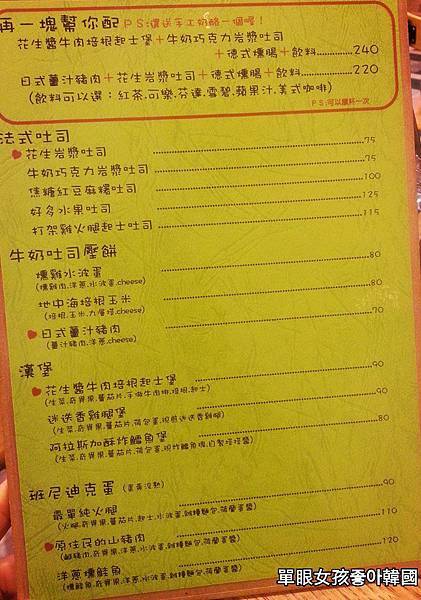 再一塊幫你配 P.S:還送手工奶酪一個喔！
花生醬牛肉培根起士堡＋牛奶巧克力岩漿吐司
＋德式燻腸＋飲料 240
日式薑汁豬肉＋花生岩漿吐司＋德式燻腸＋飲料 220
(飲料可以選：紅茶.可樂.芬達.雪碧.蘋果汁.美式咖啡)
P.S:可以續杯一次
法式吐司
花生岩漿吐司 75
牛奶巧克力岩漿吐司 75
焦糖紅豆麻糬吐司 100
好多水果吐司 125
打架雞火腿起士吐司 115
牛奶吐司壓餅
燻雞水波蛋 80
(燻雞肉.洋蔥.水波蛋.cheese)
地中海培根玉米 80
(培根.玉米.九層塔.cheese)
日式薑汁豬肉 70
(薑汁豬肉.洋蔥.cheese)
漢堡
花生醬牛肉培根起士堡 90
(生菜.奇異果.蕃茄片.手做牛肉排.培根.起士)
迷迭香雞腿堡 90
(生菜.奇異果.蕃茄片.荷包蛋.現煎迷迭香雞腿)
阿拉斯加酥炸鱈魚堡 80
(生菜.奇異果.蕃茄片.荷包蛋.現炸鱈魚塊.自製塔塔醬)
班尼迪克蛋
最單純火腿 90
(火腿.奇異果.蕃茄片.起士.水波蛋.雜糧麵包.荷蘭蛋醬)
原住民的山豬肉 110
(鹹豬肉.奇異果.洋蔥.水波蛋.雜糧麵包.荷蘭蛋醬)
洋蔥燻鮭魚 120
(燻鮭魚.奇異果.洋蔥.水波蛋.雜糧麵包.荷蘭蛋醬)
單眼女孩좋아韓國